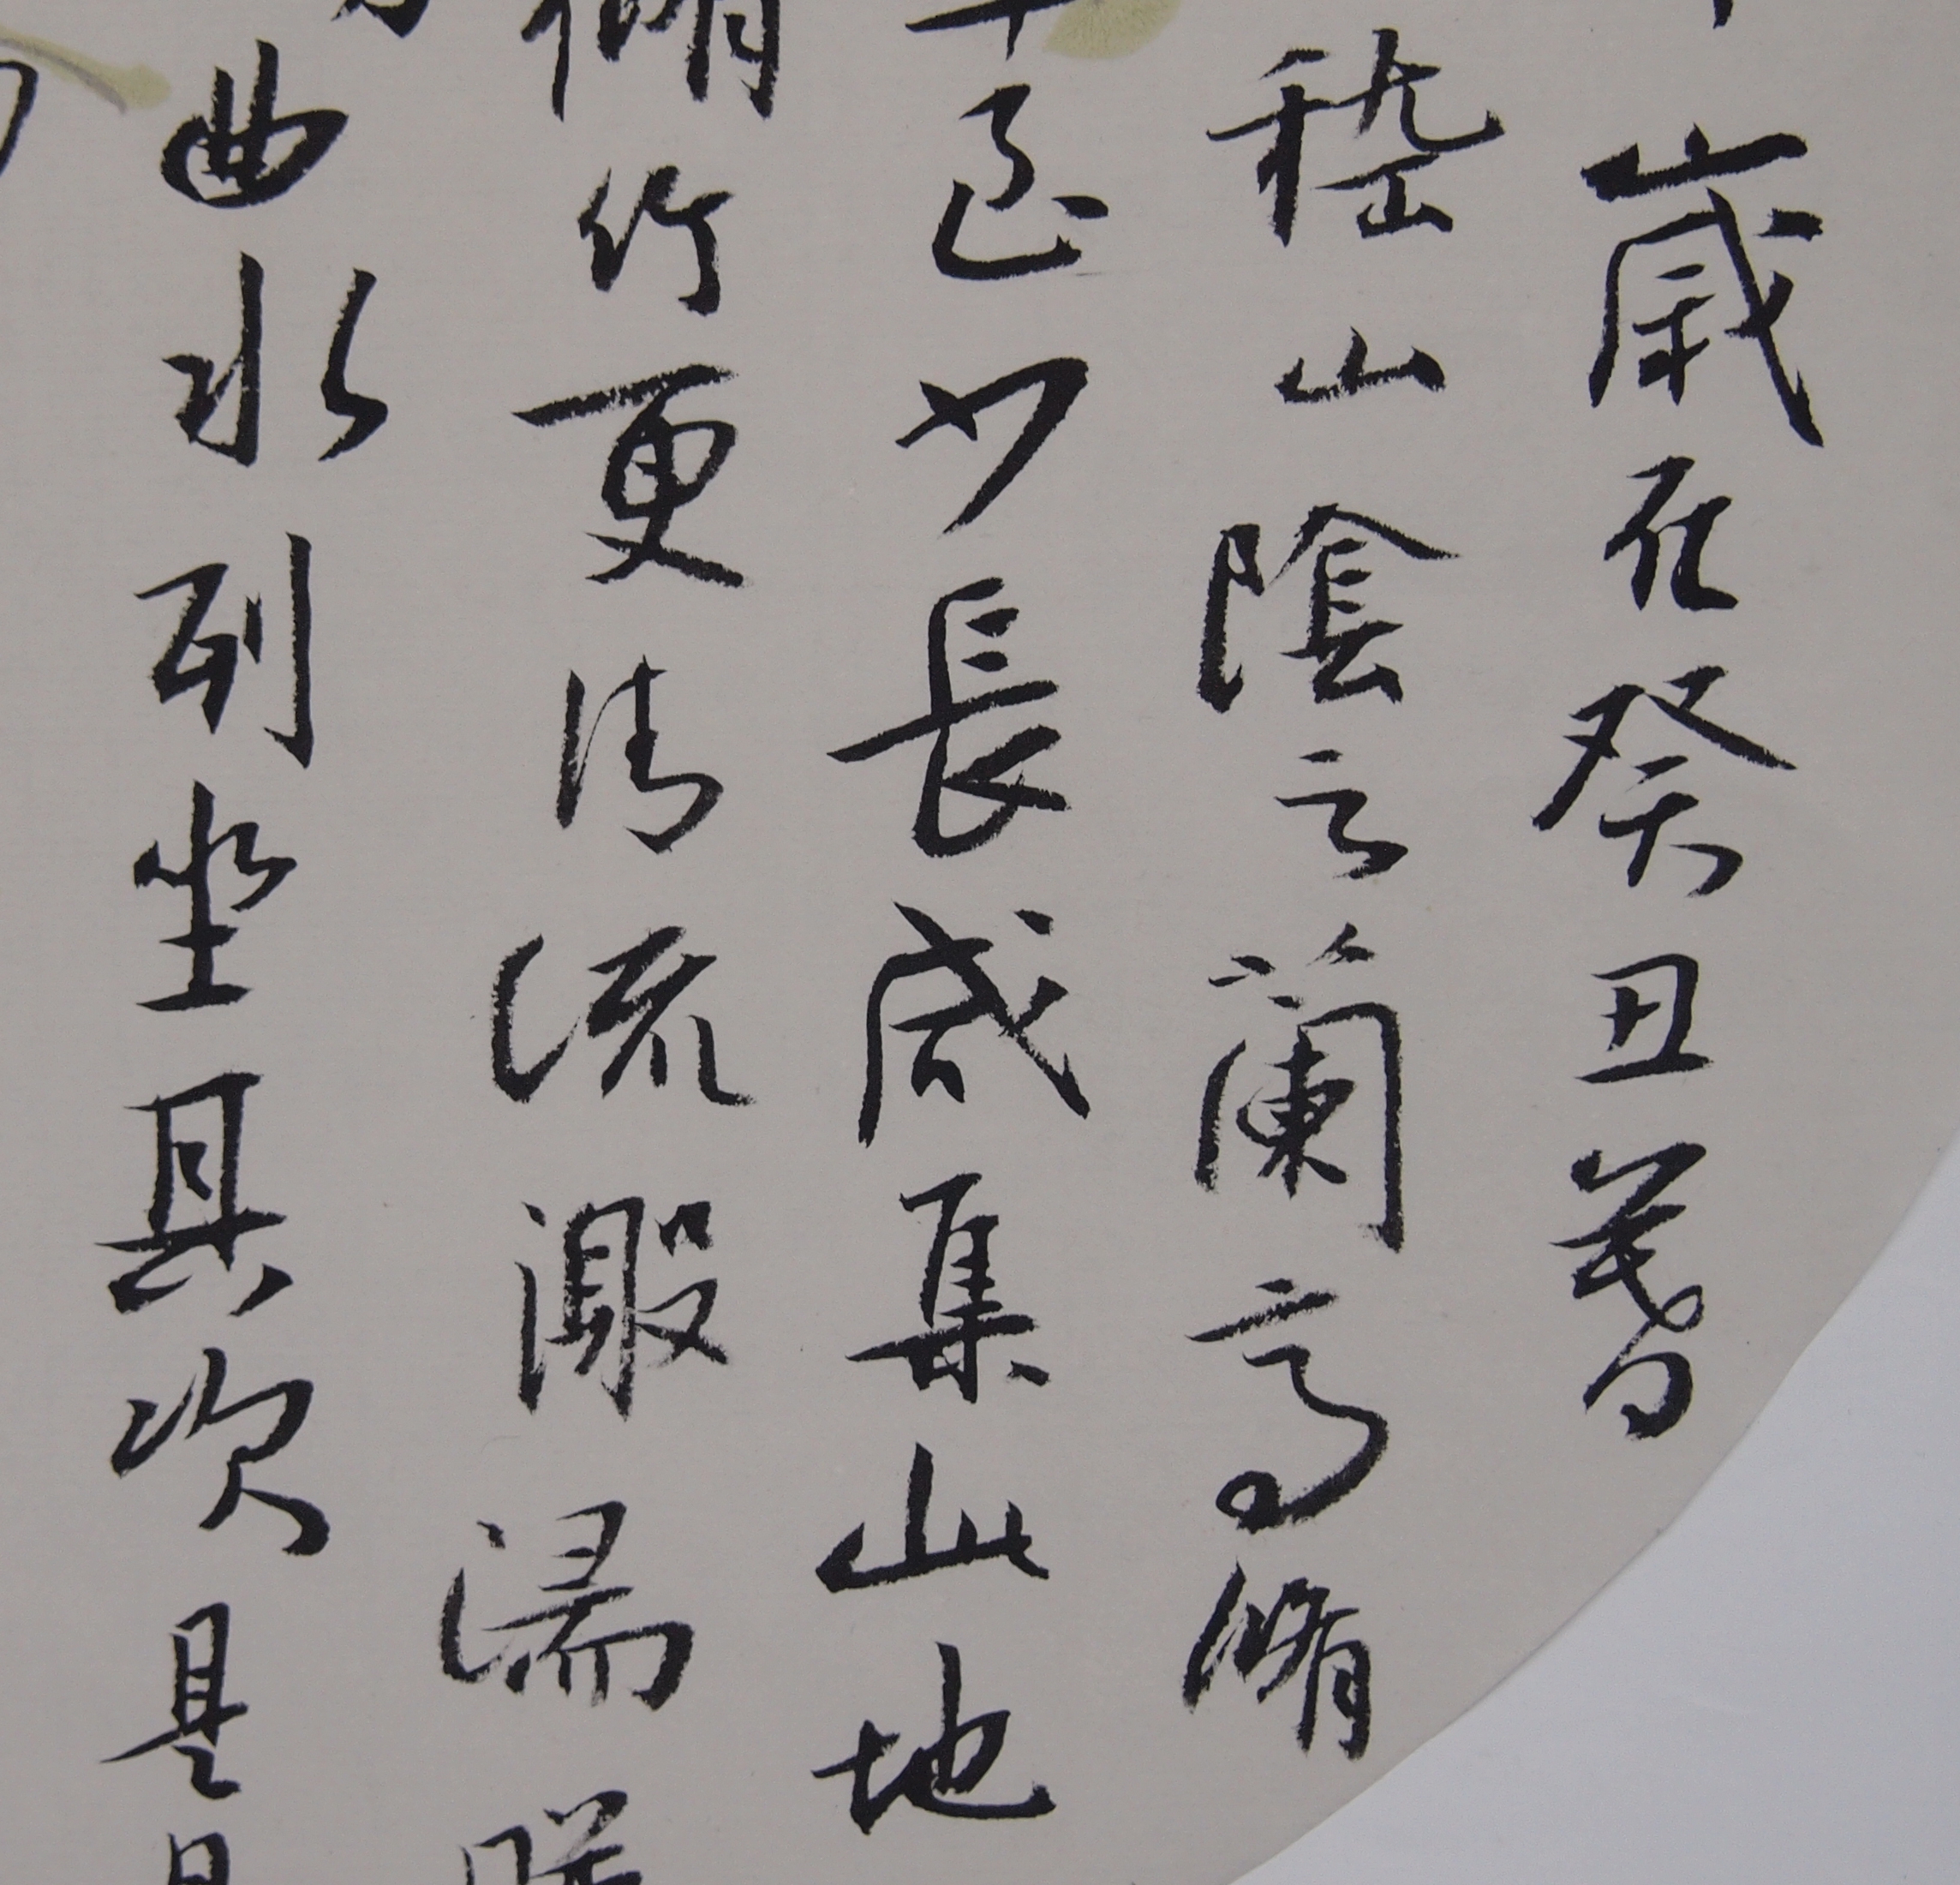 歲在癸丑暮
稽山陰之蘭亭脩
至少長咸集此地
脩竹更清流激湍
曲水列坐其次是日